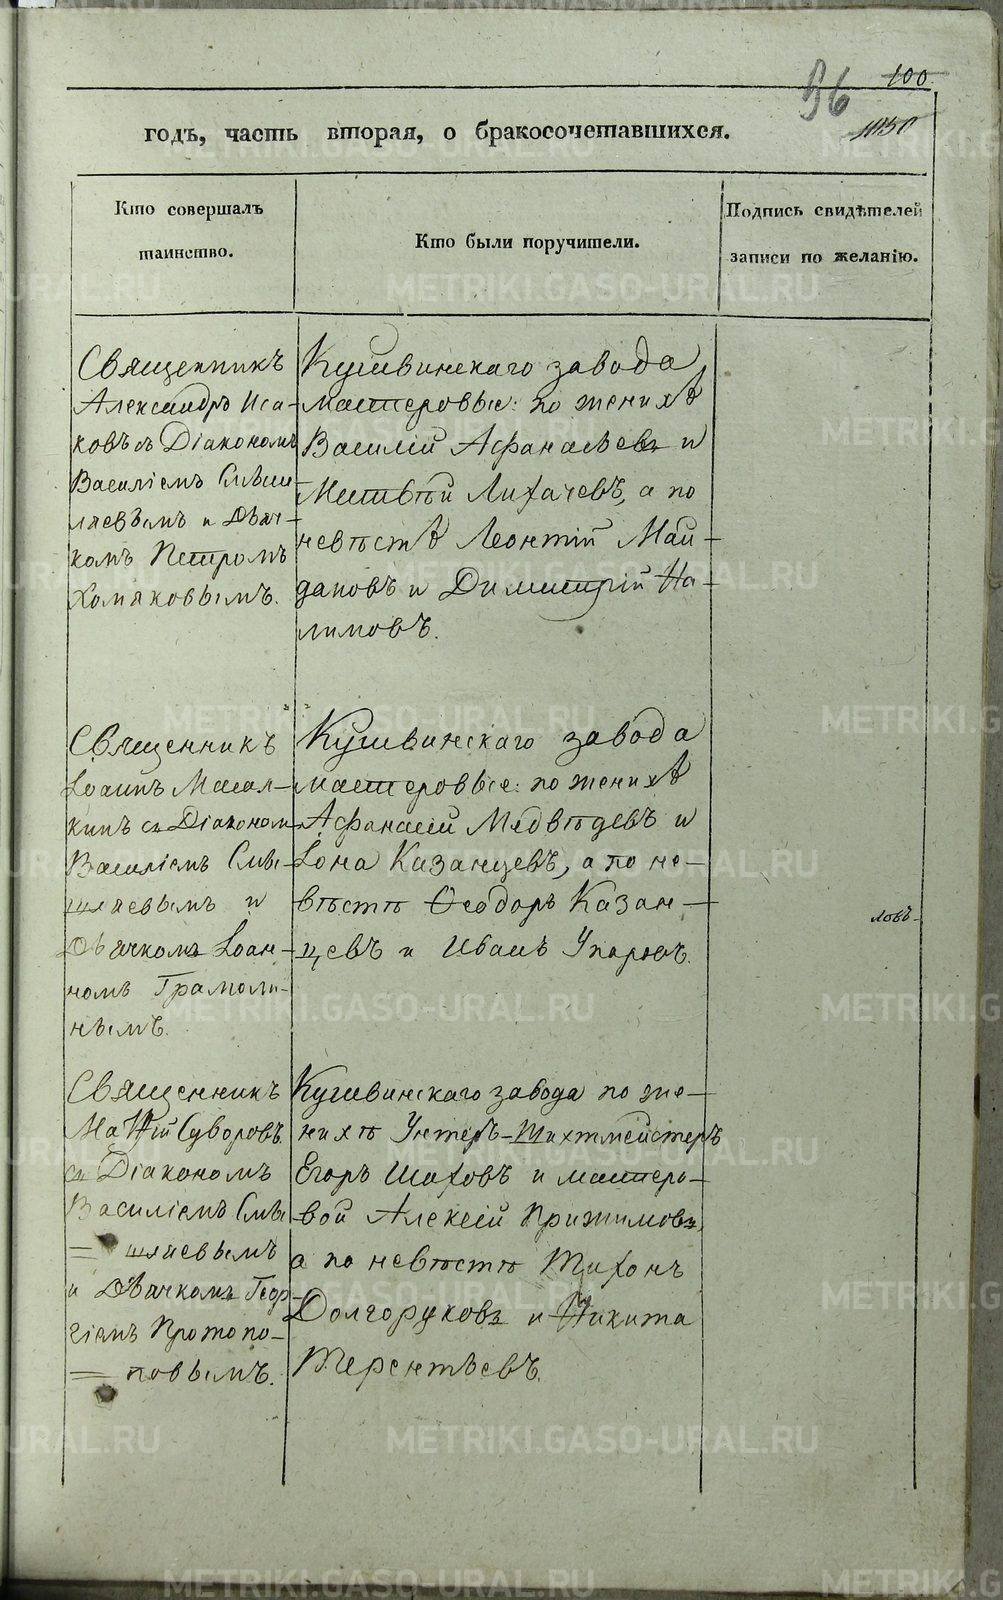 100
96
годъ, часть вторая, о бракосочетавшихся.
Кто совершалъ
таинство.
Кто были поручители.
Подпись свидѣтелей
записи по желанію.
Священникъ
Александръ Иса-
ковъ съ Діакономъ
Василіемъ Смыш-
ляевымъ и Дьяч-
комъ Петромъ
Хомяковымъ.
Кушвинскаго завода
мастеровые: по женихѣ
Василій Афанасьевъ и
Матвѣй Лихачевъ, а по
невѣстѣ Леонтій Май-
дановъ и Димитрій На-
лимовъ.
Священникъ
Іоаннъ Масал-
кинъ съ Діакономъ
Василіемъ Смы-
шляевымъ и
Дьячкомъ Іоан-
номъ Грамоли-
нымъ.
Кушвинскаго завода
мастеровые: по женихѣ
Афанасій Медвѣдевъ и
Іона Казанцевъ, а по не-
вѣстѣ Ѳеодоръ Казан-
цевъ и Иванъ
ловъ.
Священникъ
Суворовъ
съ Діакономъ
Василіемъ Смы
= шляевымъ
и Дьячкомъ Геор-
гіемъ Протопо-
= повымъ.
Кушвинскаго завода по же-
нихѣ Унтеръ-Шихтмейстеръ
Егоръ Шаховъ и мастеро-
вой Алексѣй Прижимовъ,
а по невѣстѣ Тихонъ
Долгоруковъ и Никита
Терентьевъ.
METRIKI.GASO-URAL.RU